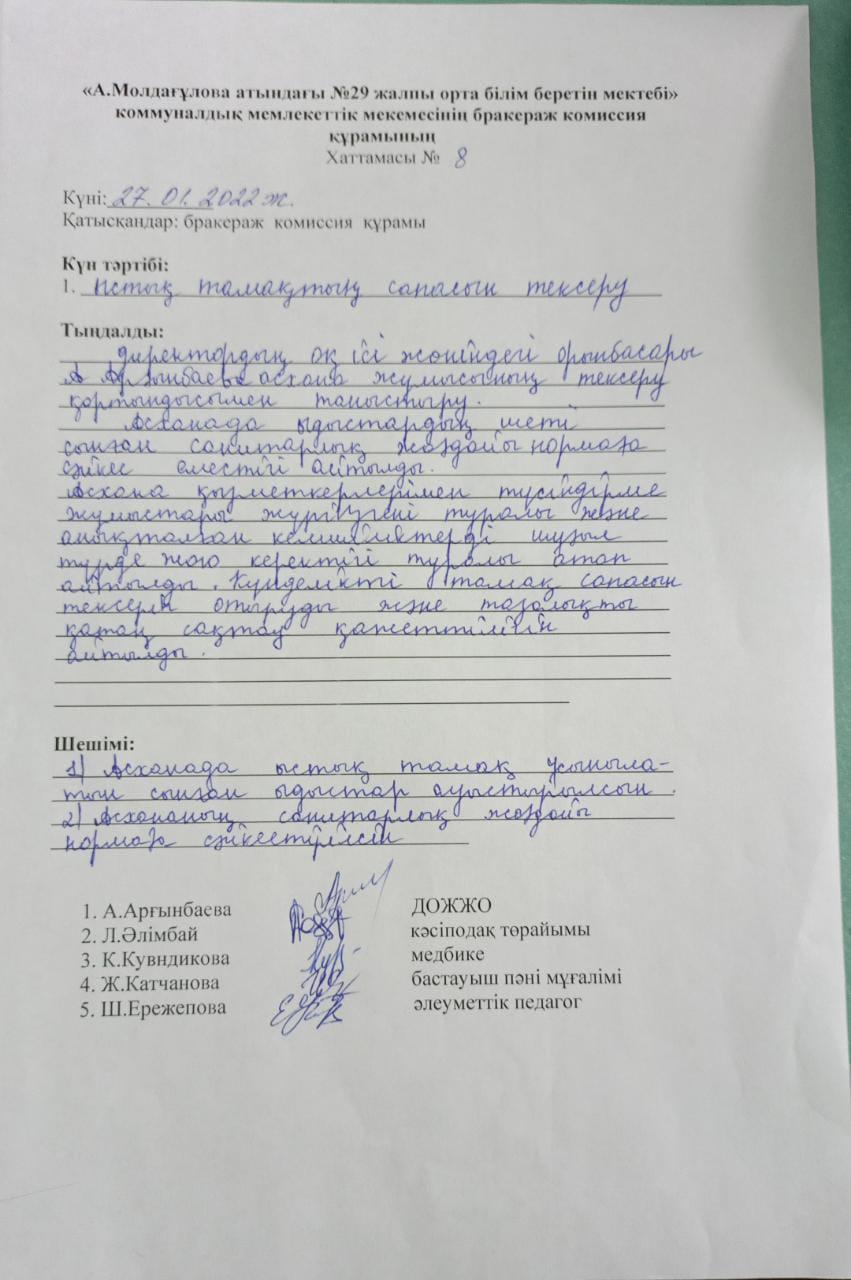 «А.Молдағұлова атындағы №29 жалпы орта білім беретін мектебі»
коммуналдық мемлекеттік мекемесінің бракераж комиссия
құрамының
Хаттамасы № 8
Күні: 27. 01. 2022 ж.
Қатысқандар: бракераж комиссия құрамы
Күн тәртібі:
1. Ыстық тамақтың сапасын тексеру
Тыңдалды:
директордың оқ ісі жөніндегі орынбасары
А Арғынбаева асхана жұмысының тексеру
қортындысымен таныстыру.
Асханада ыдыстардың шеті
сынған санитарлық жағдайы нормаға
сәйкес еместігі айтылды.
Асхана қызметкерлерімен түсіндірме
жұмыстары жүргізгені туралы және
анықталған кемшіліктерді шұғыл
түрде жою керектігі туралы атап
айтылды. Күнделікті тамақ сапасын
тексеріп отыруды және тазалықты
қатаң сақтау қажеттілігін
айтылды.
Шешімі:
1) Асханада ыстық тамақ ұсыныла-
тын сынған ыдыстар ауыстырылсын.
2) Асхананың санитарлық жағдайы
нормаға сәйкестірілсін
1. А.Арғынбаева ДОЖЖО
2. Л.Әлімбай кәсіподақ төрайымы
3. К.Кувндикова медбике
4. Ж.Катчанова бастауыш пәні мұғалімі
5. Ш.Ережепова әлеуметтік педагог